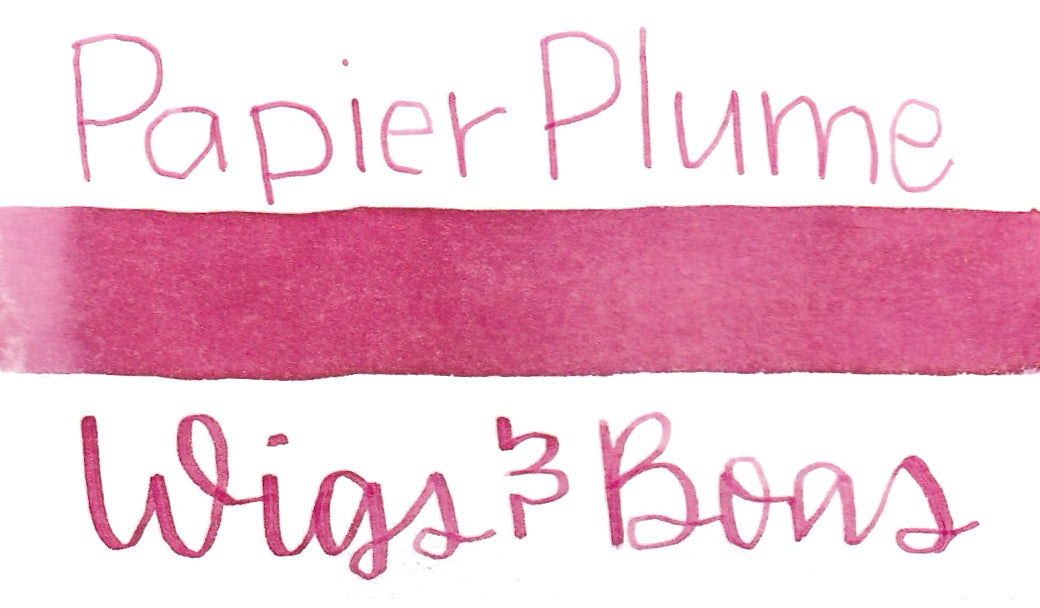 Papier Plume
Wigs & Boas